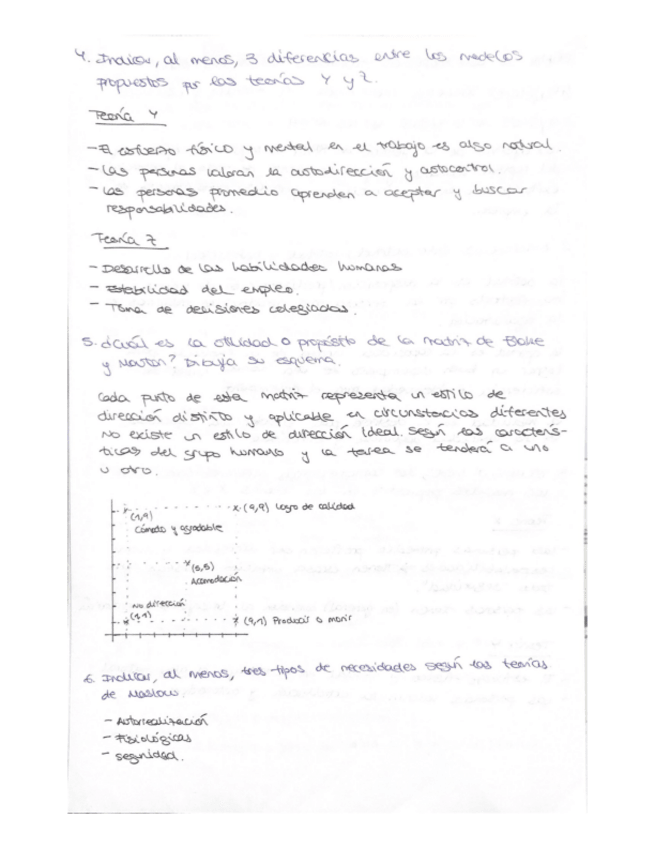 4. Indicar, al menos, 3 diferencias entre los modelos
propuestos por las teorías Y y Z.
Teoría Y
- El esfuerzo físico y mental en el trabajo es algo natural.
- Las personas valoran la autodirección y autocontrol.
- Las personas promedio aprenden a aceptar y buscar
responsabilidades.
Teoría Z
- Desarrollo de las habilidades humanas
- Estabilidad del empleo.
- Toma de decisiones colegiadas.
5. ¿Cuál es la utilidad o propósito de la matriz de Blake
y Mouton? Dibuja su esquema.
Cada punto de esta matriz representa un estilo de
dirección distinto y aplicable en circunstancias diferentes
No existe un estilo de dirección ideal. Según las caracterís-
ticas del grupo humano y la tarea se tenderá a uno
u otro.
x (9,9) Logro de calidad
(1,9)
Cómodo y agradable
x (5,5)
Acomodación
no dirección
(1,1)
x (9,1) Producir o morir
6. Indicar, al menos, tres tipos de necesidades según las teorías
de Maslow.
- Autorrealización
- Fisiológicas
- Seguridad.